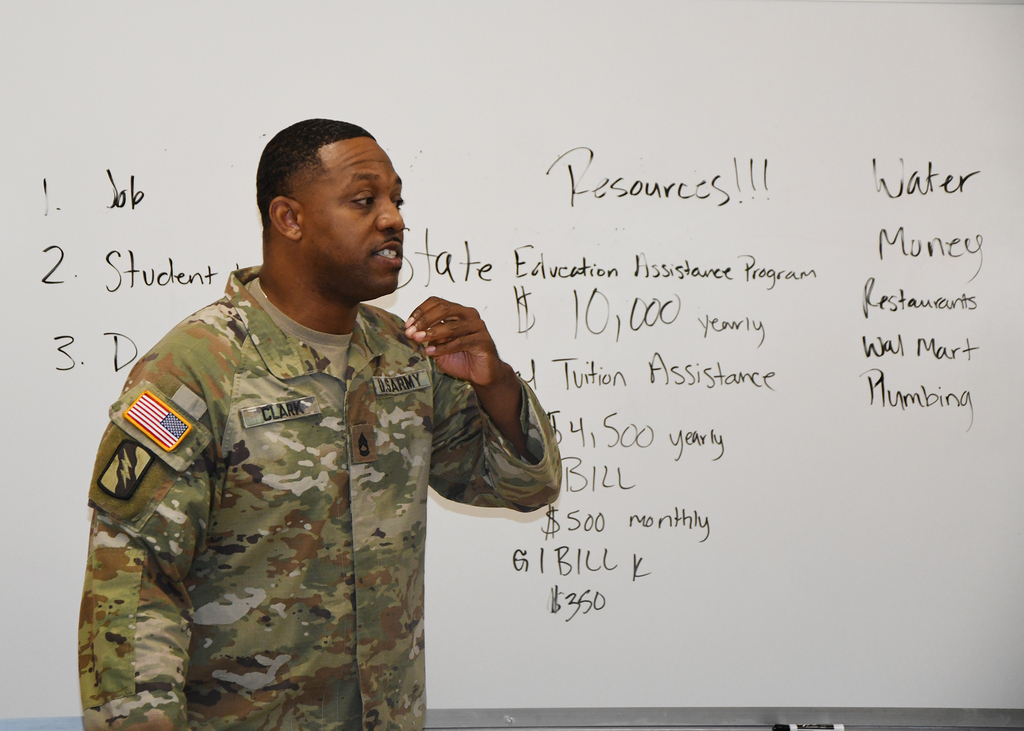 1. Job
2. Student
3. D
Resources!!!
State Education Assistance Program
$10,000 yearly
Tuition Assistance
$4,500 yearly
BILL
$500 monthly
GI BILL K
$350
Water
Money
Restaurants
Wal Mart
Plumbing
CLARK
U.S. ARMY